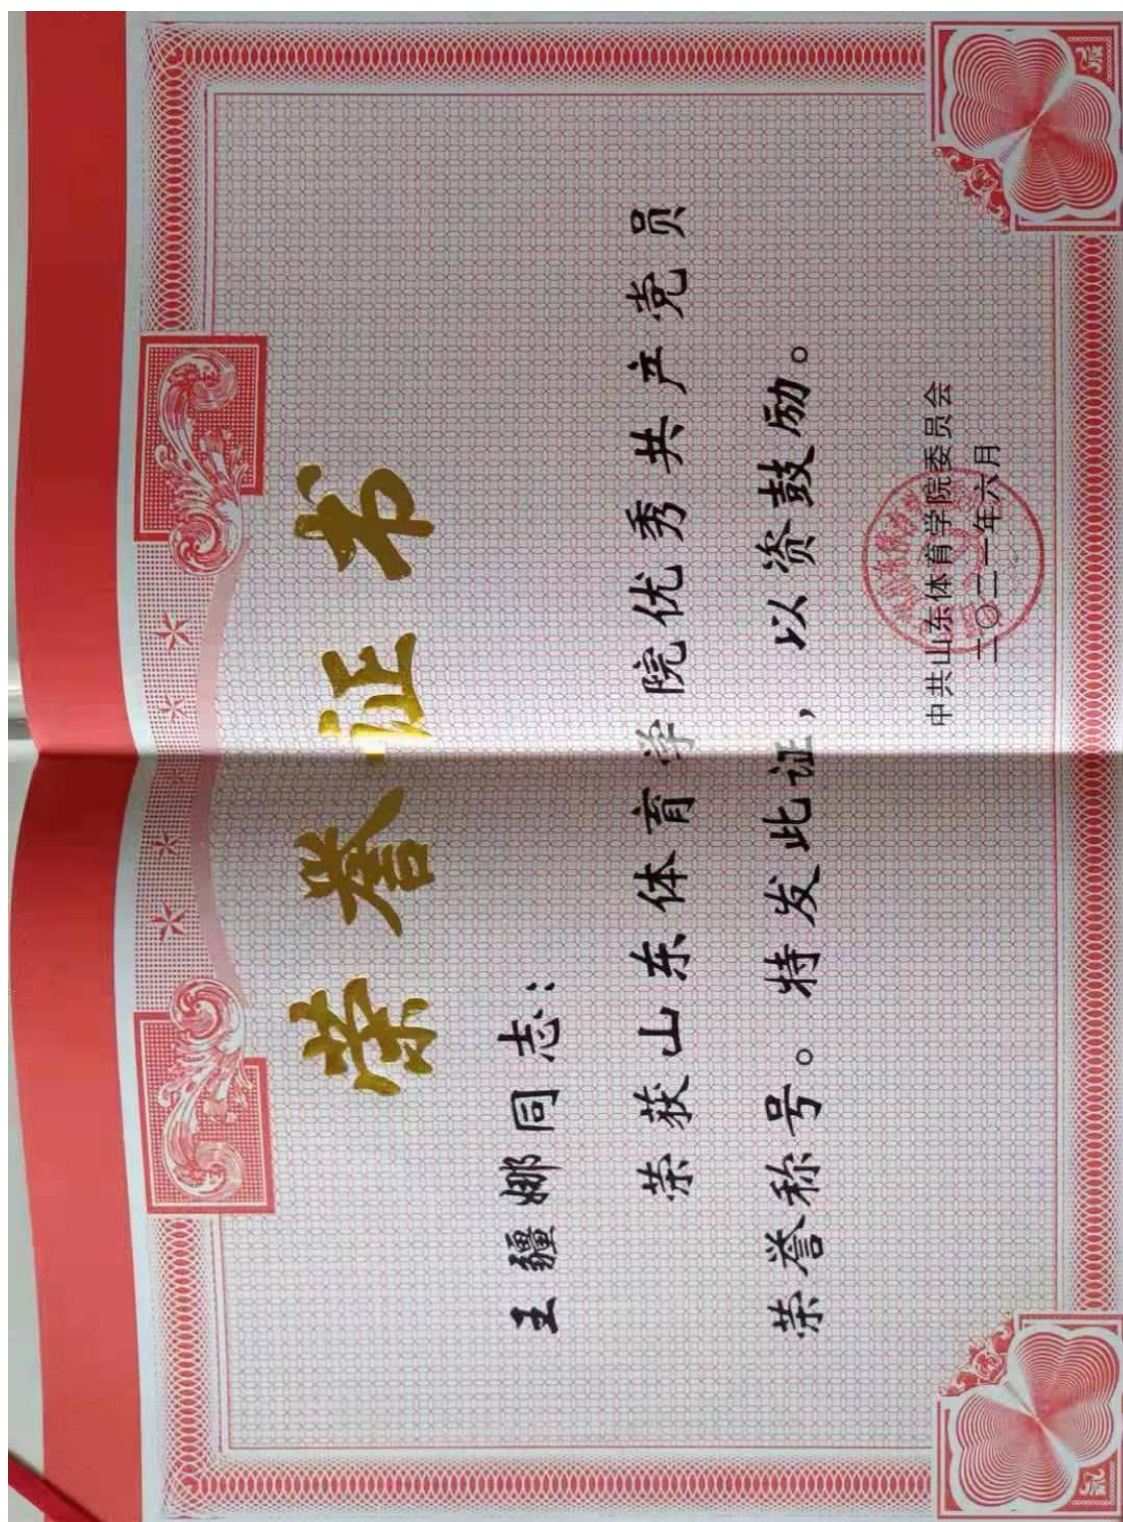 荣誉证书
王疆娜同志：
荣获山东体育学院优秀共产党员
荣誉称号。特发此证，以资鼓励。
中共山东体育学院委员会
二〇二一年六月